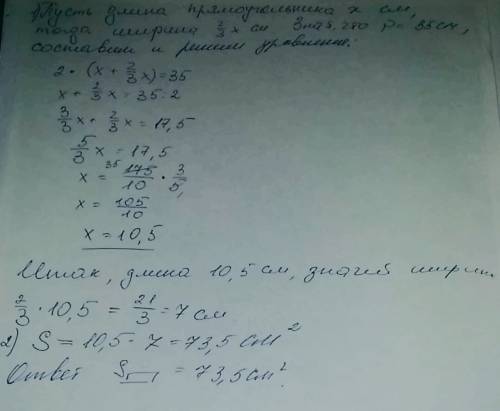 Пусть длина прямоугольника x см,
тогда ширина 2/3 x см. Зная, что P = 35 см,
составим и решим уравнение:
2 · (x + 2/3 x) = 35
x + 2/3 x = 35 : 2
3/3 x + 2/3 x = 17,5
5/3 x = 17,5
x = 175/10 · 3/5 35
x = 105/10
x = 10,5
Итак, длина 10,5 см, значит ширин
2/3 · 10,5 = 21/3 = 7 см
2) S = 10,5 · 7 = 73,5 см²
Ответ S▭ = 73,5 см².